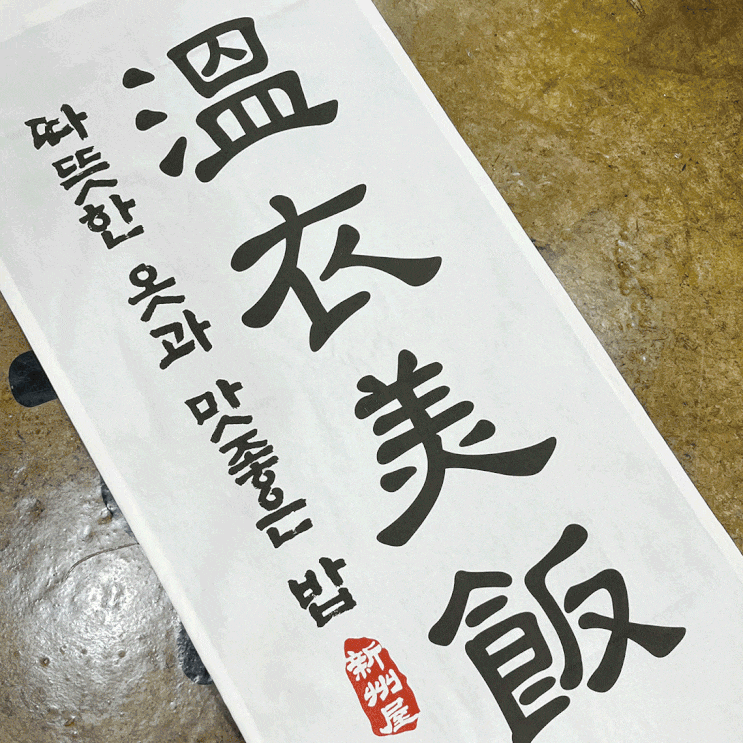 溫衣美飯
따뜻한 옷과 맛좋은 밥
新州屋